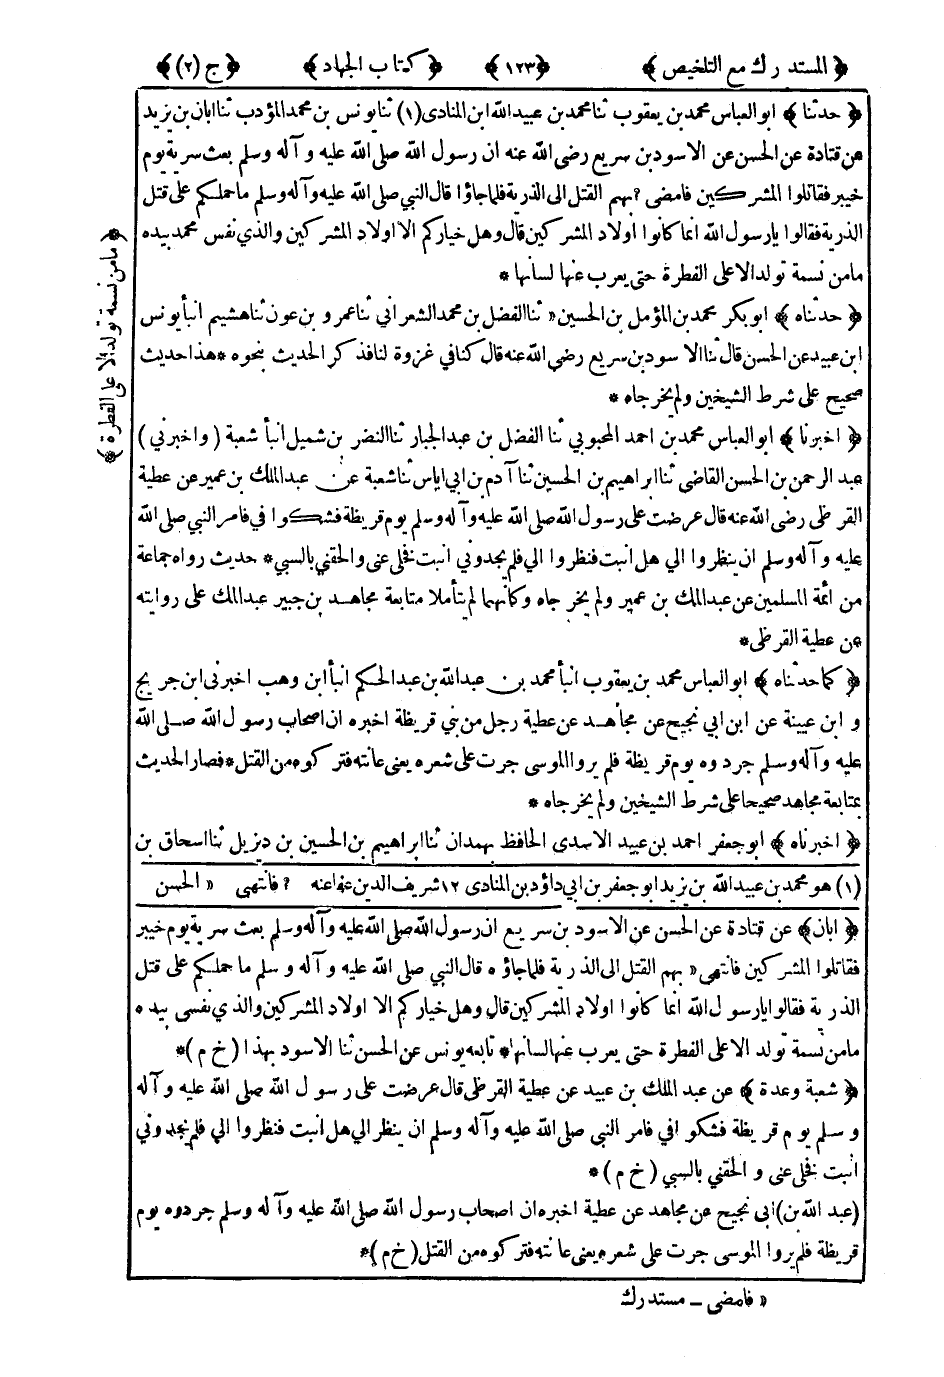 ﴿ المستدرك مع التلخيص ﴾ ﴿١٢٣﴾ ﴿ كتاب الجهاد ﴾ ﴿ ج (٢) ﴾
﴿ حدثنا ﴾ ابوالعباس محمدبن يعقوب ثنا محمدبن عبيدالله ابن المنادى (١) ثنا يونس بن محمدالمؤدب ثنا ابان بن يزيد
عن قتادة عن الحسن عن الاسودبن سريع رضى الله عنه ان رسول الله صلى الله عليه و آله وسلم بعث سرية يوم
خيبر فقاتلوا المشركين فامضى ؟ بهم القتل الى الذرية فلما جاؤا قال النبي صلى الله عليه وآله وسلم ماحملكم على قتل
الذرية فقالوا يارسول الله انما كانوا اولاد المشركين قال وهل خياركم الا اولاد المشركين والذي نفس محمد بيده
مامن نسمة تولد الا على الفطرة حتى يعرب عنها لسانها *
﴿ حدثناه ﴾ ابوبكر محمدبن المؤمل بن الحسين « ثنا الفضل بن محمد الشعراني ثنا عمرو بن عون ثنا هشيم انبأ يونس
ابن عبيد عن الحسن قال ثنا الاسودبن سريع رضى الله عنه قال كنا في غزوة لنا فذكر الحديث بنحوه * هذا حديث
صحيح على شرط الشيخين ولم يخرجاه *
﴿ اخبرنا ﴾ ابوالعباس محمدبن احمد المحبوبي ثنا الفضل بن عبدالجبار ثنا النضر بن شميل انبأ شعبة (واخبرني)
عبد الرحمن بن الحسن القاضى ثنا ابراهيم بن الحسين ثنا آدم بن ابي اياس ثنا شعبة عن عبدالملك بن عمير عن عطية
القرظى رضى الله عنه قال عرضت على رسول الله صلى الله عليه وآله وسلم يوم قريظة فشكوا في فامر النبي صلى الله
عليه وآله وسلم ان ينظروا الي هل انبت فنظروا الي فلم يجدوني انبت فخلى عنى والحقني بالسبي * حديث رواه جماعة
من ائمة المسلمين عن عبدالملك بن عمير ولم يخرجاه وكانهما لم يتأملا متابعة مجاهد بن جبير عبدالملك على روايته
عن عطية القرظى *
﴿ كما حدثناه ﴾ ابوالعباس محمد بن يعقوب انبأ محمد بن عبدالله بن عبدالحكم انبأ ابن وهب اخبرنى ابن جريج
و ابن عيينة عن ابن ابي نجيح عن مجاهد عن عطية رجل من بني قريظة اخبره ان اصحاب رسول الله صلى الله
عليه وآله وسلم جردوه يوم قريظة فلم يروا الموسى جرت على شعره يعنى عانته فتركوه من القتل * فصار الحديث
بمتابعة مجاهد صحيحا على شرط الشيخين ولم يخرجاه *
﴿ اخبرناه ﴾ ابوجعفر احمد بن عبيد الاسدى الحافظ بهمدان ثنا ابراهيم بن الحسين بن ديزيل ثنا اسحاق بن
﴿ مامن نسمة تولد الا على الفطرة ﴾
(١) هو محمد بن عبيدالله بن يزيد ابوجعفر بن ابي داؤد بن المنادى ١٢ شريف الدين عفا عنه ؟ فانتهى « الحسن
﴿ ابان ﴾ عن قتادة عن الحسن عن الاسود بن سريع ان رسول الله صلى الله عليه وآله وسلم بعث سرية يوم خيبر
فقاتلوا المشركين فانتهى « بهم القتل الى الذرية فلما جاؤه قال النبي صلى الله عليه وآله وسلم ماحملكم على قتل
الذرية فقالوا يارسول الله انما كانوا اولاد المشركين قال وهل خياركم الا اولاد المشركين والذي نفسى بيده
مامن نسمة تولد الا على الفطرة حتى يعرب عنها لسانها * تابعه يونس عن الحسن ثنا الاسود بهذا (خ م) *
﴿ شعبة وعدة ﴾ عن عبد الملك بن عبيد عن عطية القرظى قال عرضت على رسول الله صلى الله عليه وآله
وسلم يوم قريظة فشكوا في فامر النبي صلى الله عليه وآله وسلم ان ينظر الي هل انبت فنظروا الي فلم يجدوني
انبت فخلى عنى و الحقني بالسبي (خ م) *
(عبد الله بن) ابي نجيح عن مجاهد عن عطية اخبره ان اصحاب رسول الله صلى الله عليه وآله وسلم جردوه يوم
قريظة فلم يروا الموسى جرت على شعره يعنى عانته فتركوه من القتل (خ م) *
« فامضى – مستدرك